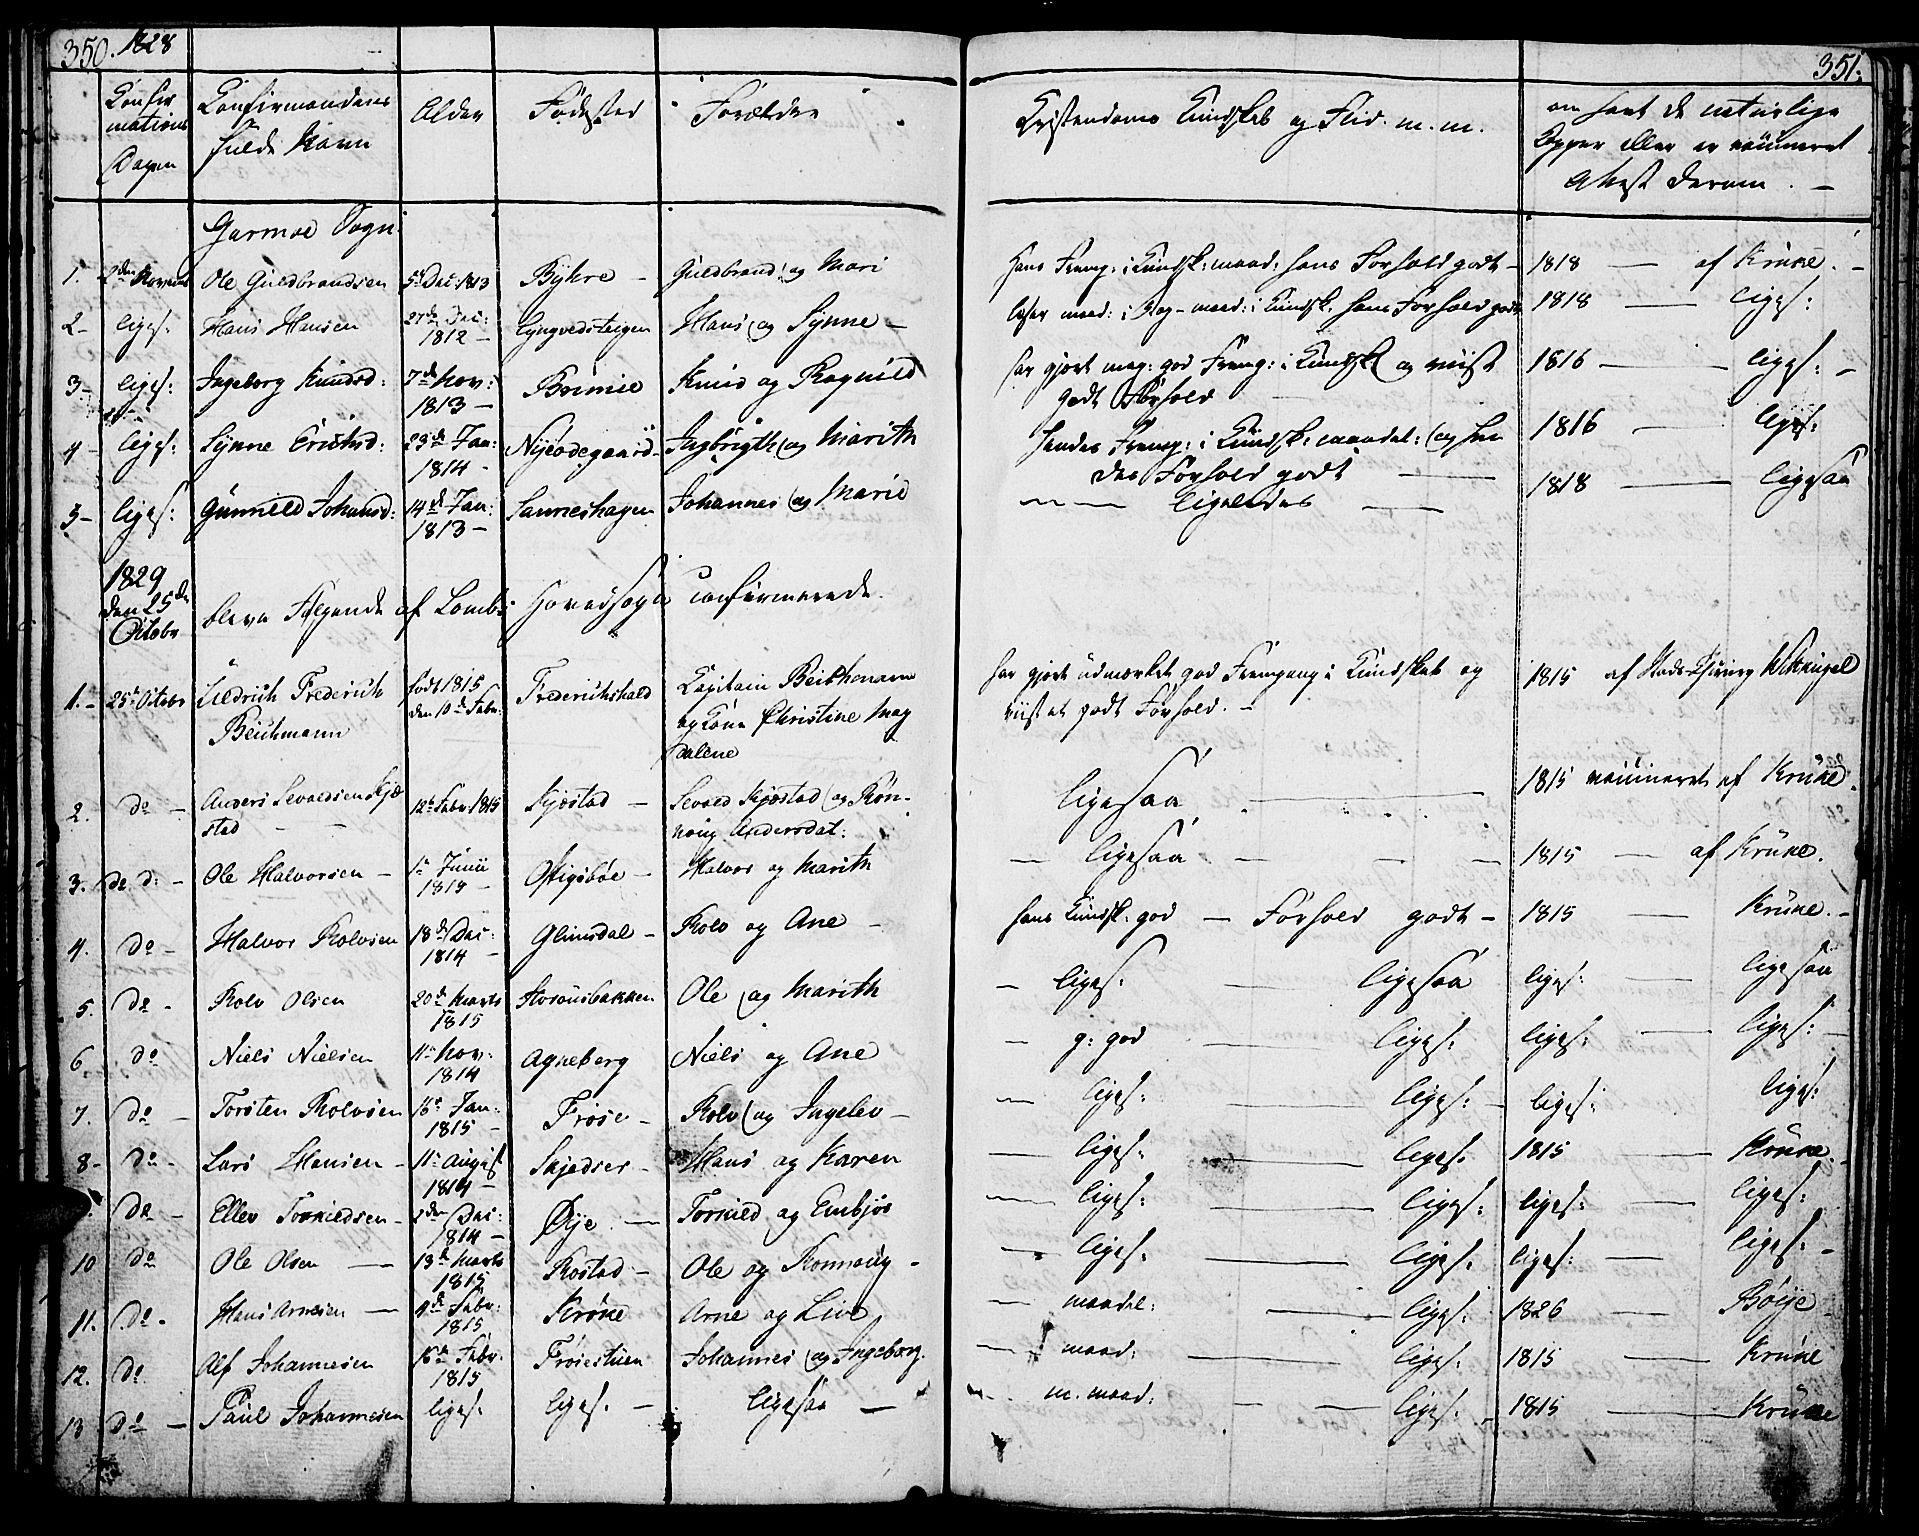 350. 1828
351.
Confir
mations
Dagen
Confirmandens
fulde Navn
Alder
Fødested
Forældre
Kristendoms Kundskab og Flid. m. m.
om havt de naturlige
Kopper eller er vaccineret
Attest derom. -
Garmoe Sogn
1. 2den Novemb Ole Guldbrandsen 5te Dec: 1813 Bykre - Guldbrand og Mari Hans Fremg: i Kundsk: maad: hans Forhold godt - 1818 - af Krukе. -
2- liges: Hans Hansen 27de Dec: 1812 - Lyngvedsteigen Hans og Synne - læser maad: i Bog - maad: i Kundsk: hans Forhold godt 1818 - liges:
3- liges: Ingeborg Knudsd: 7de Nov: 1813 - Knud og Ragnild har gjort meg: god Fremg: i Kundsk og viist
godt Forhold 1816 - liges: -
4- liges: Synne Erichsd: 23de Jan: 1814 - Nyeødegaard - Ingbrigth og Marith Hendes Fremg: i Kundsk: maadel: og hen
des Forhold godt 1816 - liges:
5- liges: Gunnild Johansd: 14de Jan: 1813 - Sanneshagen Johannes og Marie ligeledes 1818 - ligesaa
1829
den 25de
Octobr bleve Følgende af Lomb: Hovedsogn confirmerede.
1. - 25de Octobr Uldrich Frederich
Beichmann født 1815
den 10de Febr: Frederichshald Capitain Beichmann
og Kone Christine Mag
dalene har gjort udmærket god Fremgang i Kundskab og
viist et godt Forhold. - 1815 af Stads-Chirurg
2. do - Anders Sevaldsen Skjæ
stad 12te Febr 1815 Skjæstad - Sevald Skjæstad og Røn-
noug Andersdat: ligesaa 1815 vaccineret af Kruke.
3. do - Ole Halvorsen - 1te Junii 1815 - Halvor og Marith - ligesaa - 1815 - af Kruke.
4. do - Halvor Rolvsen 18de Dec: 1814 - Glimsdal - Rolv og Ane - hans Kundsk: god - Forhold godt - 1815 - Kruke. -
5. do - Rolv Olsen 20de Marts 1815 Ole og Marith - liges: ligesaa liges: - ligesaa
6. do Niels Nielsen 11te Nov: 1814 Agneberg Niels og Ane - g: god - liges: liges: - liges: -
7. do - Torsten Rolvsen 16de Jan: 1815 - Frøse - Rolv og Ingelev - - liges: - liges: - liges: liges:
8- do - Lars Hansen - 11te August 1814 - Skjedser - Hans og Karen - liges: - liges: 1815 Kruke. -
do - Ellev Torkildsen - 2den Dec: 1814 - Øye - Torkild og Embjør - liges: - liges: liges: - liges:
10 do Ole Olsen - 13de Marts 1815 Rostad - Ole og Ronnoug - - liges: - liges: liges: - liges: -
11. do - Hans Arnesen - 4de Febr: 1815 Krøke Arne og Live - maadel: - liges: 1826 - Bøeje
12. do Alf Johannesen 16de Febr. 1815 Frøisetuen Johannes og Ingeborg. - maad: liges: 1815 - Kruke
13 do - Paul Johannesen liges: liges: - ligesaa - m. maad: - - liges: - 1815 - Kruke